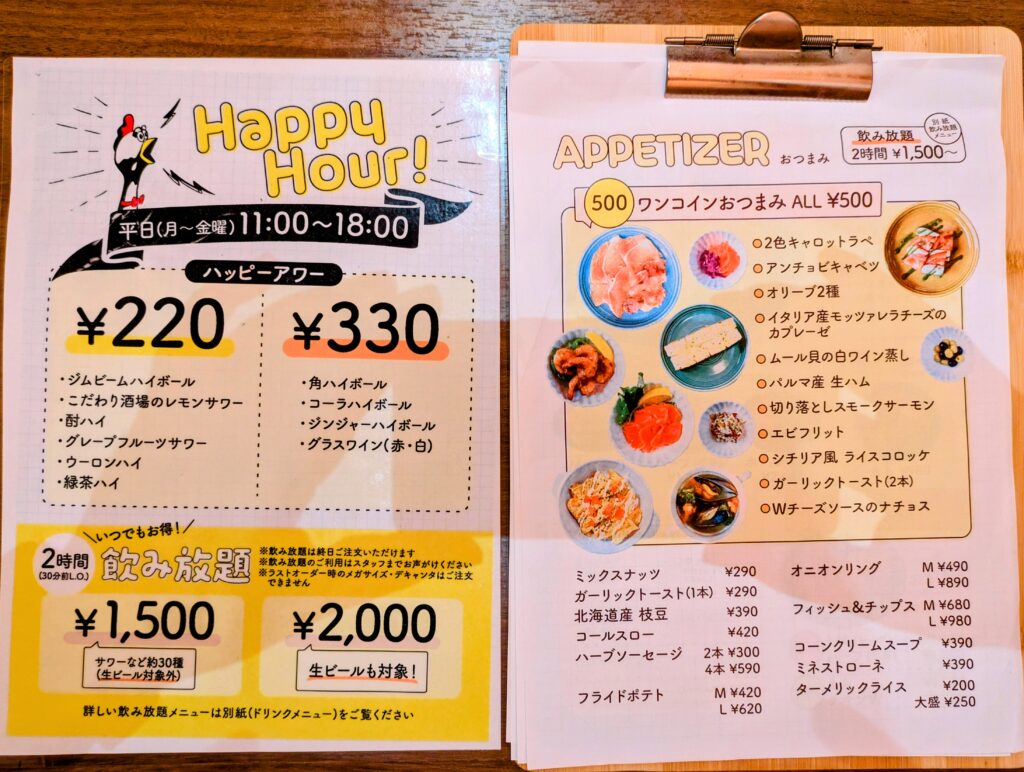 Happy
Hour!
平日(月~金曜) 11:00~18:00
ハッピーアワー
¥220
・ジムビームハイボール
・こだわり酒場のレモンサワー
・酎ハイ
・グレープフルーツサワー
・ウーロンハイ
・緑茶ハイ
¥330
・角ハイボール
・コーラハイボール
・ジンジャーハイボール
・グラスワイン(赤・白)
いつでもお得!
2時間
(30分前L.O.)
飲み放題
※飲み放題は終日ご注文いただけます
※飲み放題のご利用はスタッフまでお声がけください
※ラストオーダー時のメガサイズ・デキャンタはご注文
できません
¥1,500
サワーなど約30種
(生ビール対象外)
¥2,000
生ビールも対象!
詳しい飲み放題メニューは別紙(ドリンクメニュー)をご覧ください
APPETIZER おつまみ
飲み放題
2時間 ¥1,500~
別紙
飲み放題
メニュー
500 ワンコインおつまみ ALL ¥500
2色キャロットラペ
アンチョビキャベツ
オリーブ2種
イタリア産モッツァレラチーズの
カプレーゼ
ムール貝の白ワイン蒸し
パルマ産 生ハム
切り落としスモークサーモン
エビフリット
シチリア風 ライスコロッケ
ガーリックトースト(2本)
Wチーズソースのナチョス
ミックスナッツ ¥290
ガーリックトースト(1本) ¥290
北海道産 枝豆 ¥390
コールスロー ¥420
ハーブソーセージ 2本 ¥300
4本 ¥590
フライドポテト M ¥420
L ¥620
オニオンリング M ¥490
L ¥890
フィッシュ&チップス M ¥680
L ¥980
コーンクリームスープ ¥390
ミネストローネ ¥390
ターメリックライス ¥200
大盛 ¥250